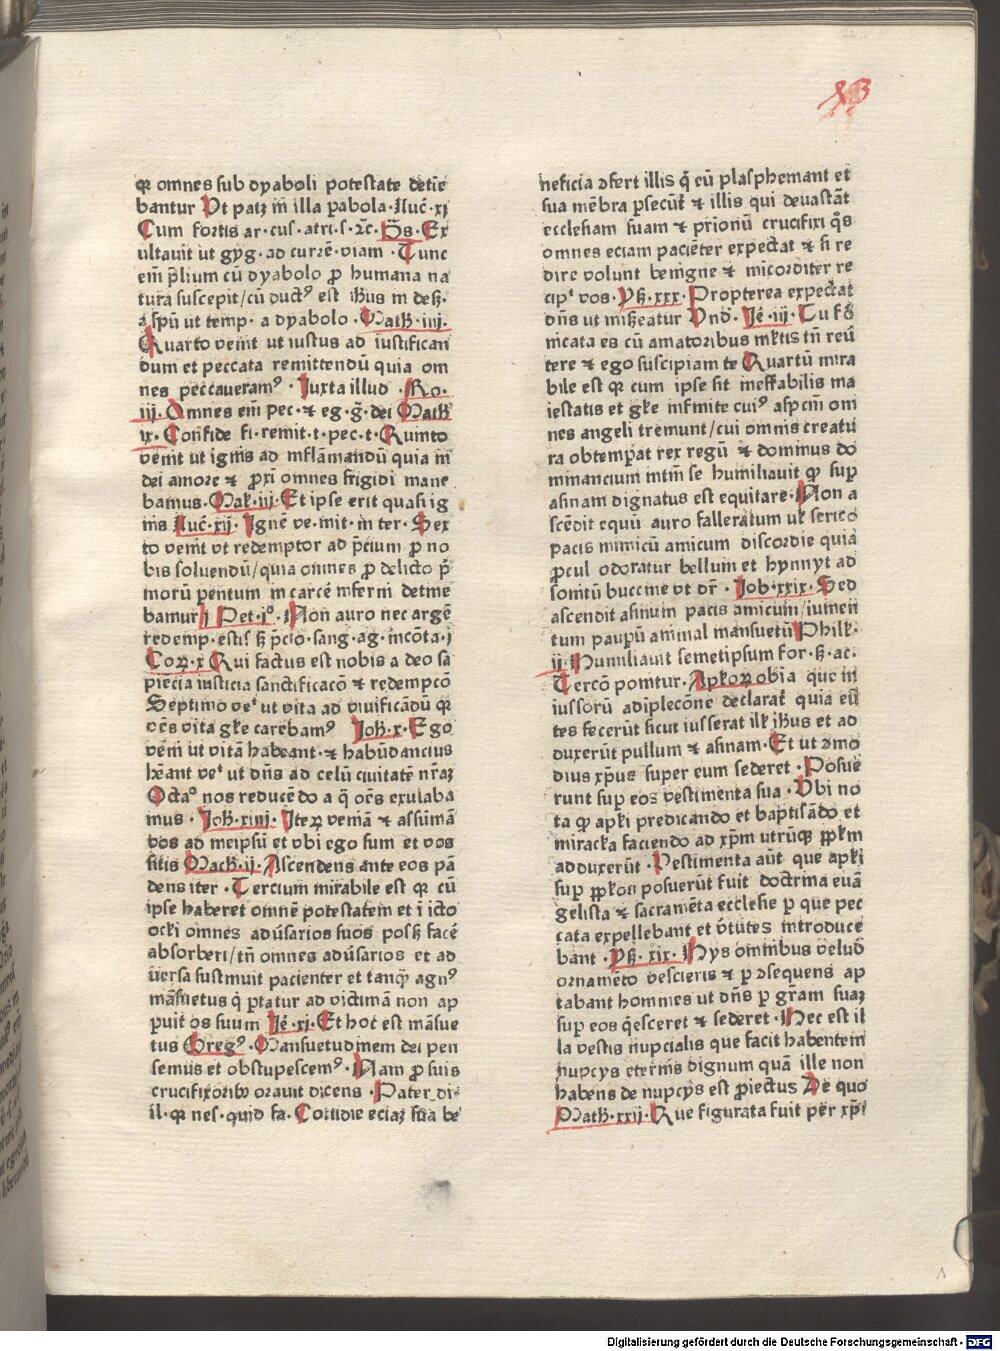 qꝛ omnes sub dyaboli potestate detīe
bantur Vt patꝫ in illa ꝑabola·Luc̄·xj
Cum fortis ar·cus·atri·s·ꝛc̄·Ps·Ex
ultauit ut gyg·ad currē·viam·Tunc
em̄ p̄lium cū dyabolo ꝓ humana na
tura suscepit/cū ductꝰ est ih̄us in des̄·
a sp̄u ut temp·a dyabolo·Math̄·iiij·
Quarto venit ut iustus ad iustifican
dum et peccata remittendū quia om
nes peccaueramꝰ·Iuxta illud·Ro·
iij·Omnes em̄ pec·⁊ eg·gl̄·dei Math̄
ix·Confide fi·remit·t·pec·t·Quinto
venit ut ignis ad inflāmandū quia in
dei amore ⁊ ꝓxi omnes frigidi mane
bamus·Mal·iij·Et ipse erit quasi ig
nis Luc̄·xij·Ignē ve·mit·in ter·Sex
to venit vt redemptor ad p̄cium ꝓ no
bis soluendū/quia omnes ꝓ delicto p̄
morū pentum in carcē inferni detine
bamur j Pet·iº·Non auro nec argē
redemp·estis sꝫ p̄cio·sang·ag·incōta·j
Coꝝ·x Qui factus est nobis a deo sa
piecia iusticia sanctificacō ⁊ redempcō
Septimo veᵗ ut vita ad viuificādū qꝛ
oēs vita gl̄e carebamꝰ Ioh̄·x·Ego
vēni ut vitā habeant·⁊ habūdancius
hēant veᵗ ut dn̄s ad celū ciuitatē nr̄aꝫ
Octaº nos reducēdo a q̄ oēs exulaba
mus·Ioh̄·xiiij·Iteꝝ veniā ⁊ assumā
vos ad meipsū et vbi ego sum et vos
sitis Mach̄·ij·Ascendens ante eos pā
dens iter·Tercium mirabile est qꝛ cū
ipse haberet omnē potestatem et ī icto
oc̄li omnes adūsarios suos posꝫ facē
absorberi/tn̄ omnes adūsarios et ad
uersa sustinuit pacienter et tanqͣ agnꝰ
māsuetus q̄ ꝑtatur ad victimā non ap
puit os suum Ie̅·xj·Et hoc est māsue
tus Gregꝰ·Mansuetudinem dei pen
semus et obstupescemꝰ·Nam ꝓ suis
crucifixoribꝰ orauit dicens·Pater di·
il·qꝛ nes·quid fa·Cottidie eciaꝫ sua be
neficia ↄfert illis q̄ eū plasphemant et
sua mēbra ꝑsecūt̄ ⁊ illis qui deuastāt
ecclesiam suam ⁊ prionū crucifixi q̄s
omnes eciam paciēter expectat ⁊ si re
dire volunt benigne ⁊ mīcorditer re
cipᵗ vos·Ysꝫ·xxx·Propterea expectat
dn̄s ut misꝫeatur Vnd̄·Ie̅·iij·Tu fō
nicata es cū amatoribus ml̄tis tn̄ reū
tere ⁊ ego suscipiam te Quartū mira
bile est qꝛ cum ipse sit ineffabilis ma
iestatis et gl̄e infinite cuiꝰ aspcm̄ om
nes angeli tremunt/cui omnis creatu
ra obtempat rex regū ⁊ dominus do
minancium intm̄ se humiliauit qꝛ suꝑ
asinam dignatus est equitare·Non a
scēdit equū auro falleratum ul̄ serico
pacis inimicū amicum discordie quia
ꝓcul odoratur bellum et hynnyt ad
sonitū buccine vt dr̄·Iob·xxix·Sed
ascendit asinum pacis amicum/iumen
tum pauꝑū animal mansuetū Phil̄·
ij·Humiliauit semetipsum for·ẜ·ac·
Tercō ponitur·Apl̄oꝝ obīa que in
iussorū adiplecōne declarat̄ quia eū
tes fecerūt sicut iusserat ill̄ ih̄us et ad
duxerūt pullum ⁊ asinam·Et ut ↄmo
dius xp̄us super eum sederet·Posue
runt suꝑ eos vestimenta sua·Vbi no
ta qꝛ apl̄i predicando et baptisādo et
miracl̄a faciendo ad xp̄m utrūqꝫ ꝓpl̄m
adduxerūt·Vestimenta aūt que apl̄i
suꝑ ꝓpl̄os posuerūt fuit doctrina euā
gelista ⁊ sacramēta ecclesie ꝑ que pec
cata expellebant et v̄tutes introduce
bant·Ysꝫ·xix·Hys omnibus velud
ornameto vescieris ⁊ ꝑ ↄsequens ap
tabant homines ut dn̄s ꝑ gr̄am suaꝫ
suꝑ eos q̄esceret ⁊ sederet·Hec est il
la vestis nupcialis que facit habentem
nupcys eternis dignum quā ille non
habens de nupcys est ꝓiectus De quo
Math̄·xxij·Que figurata fuit per xp̄i
Digitalisierung gefördert durch die Deutsche Forschungsgemeinschaft - DFG